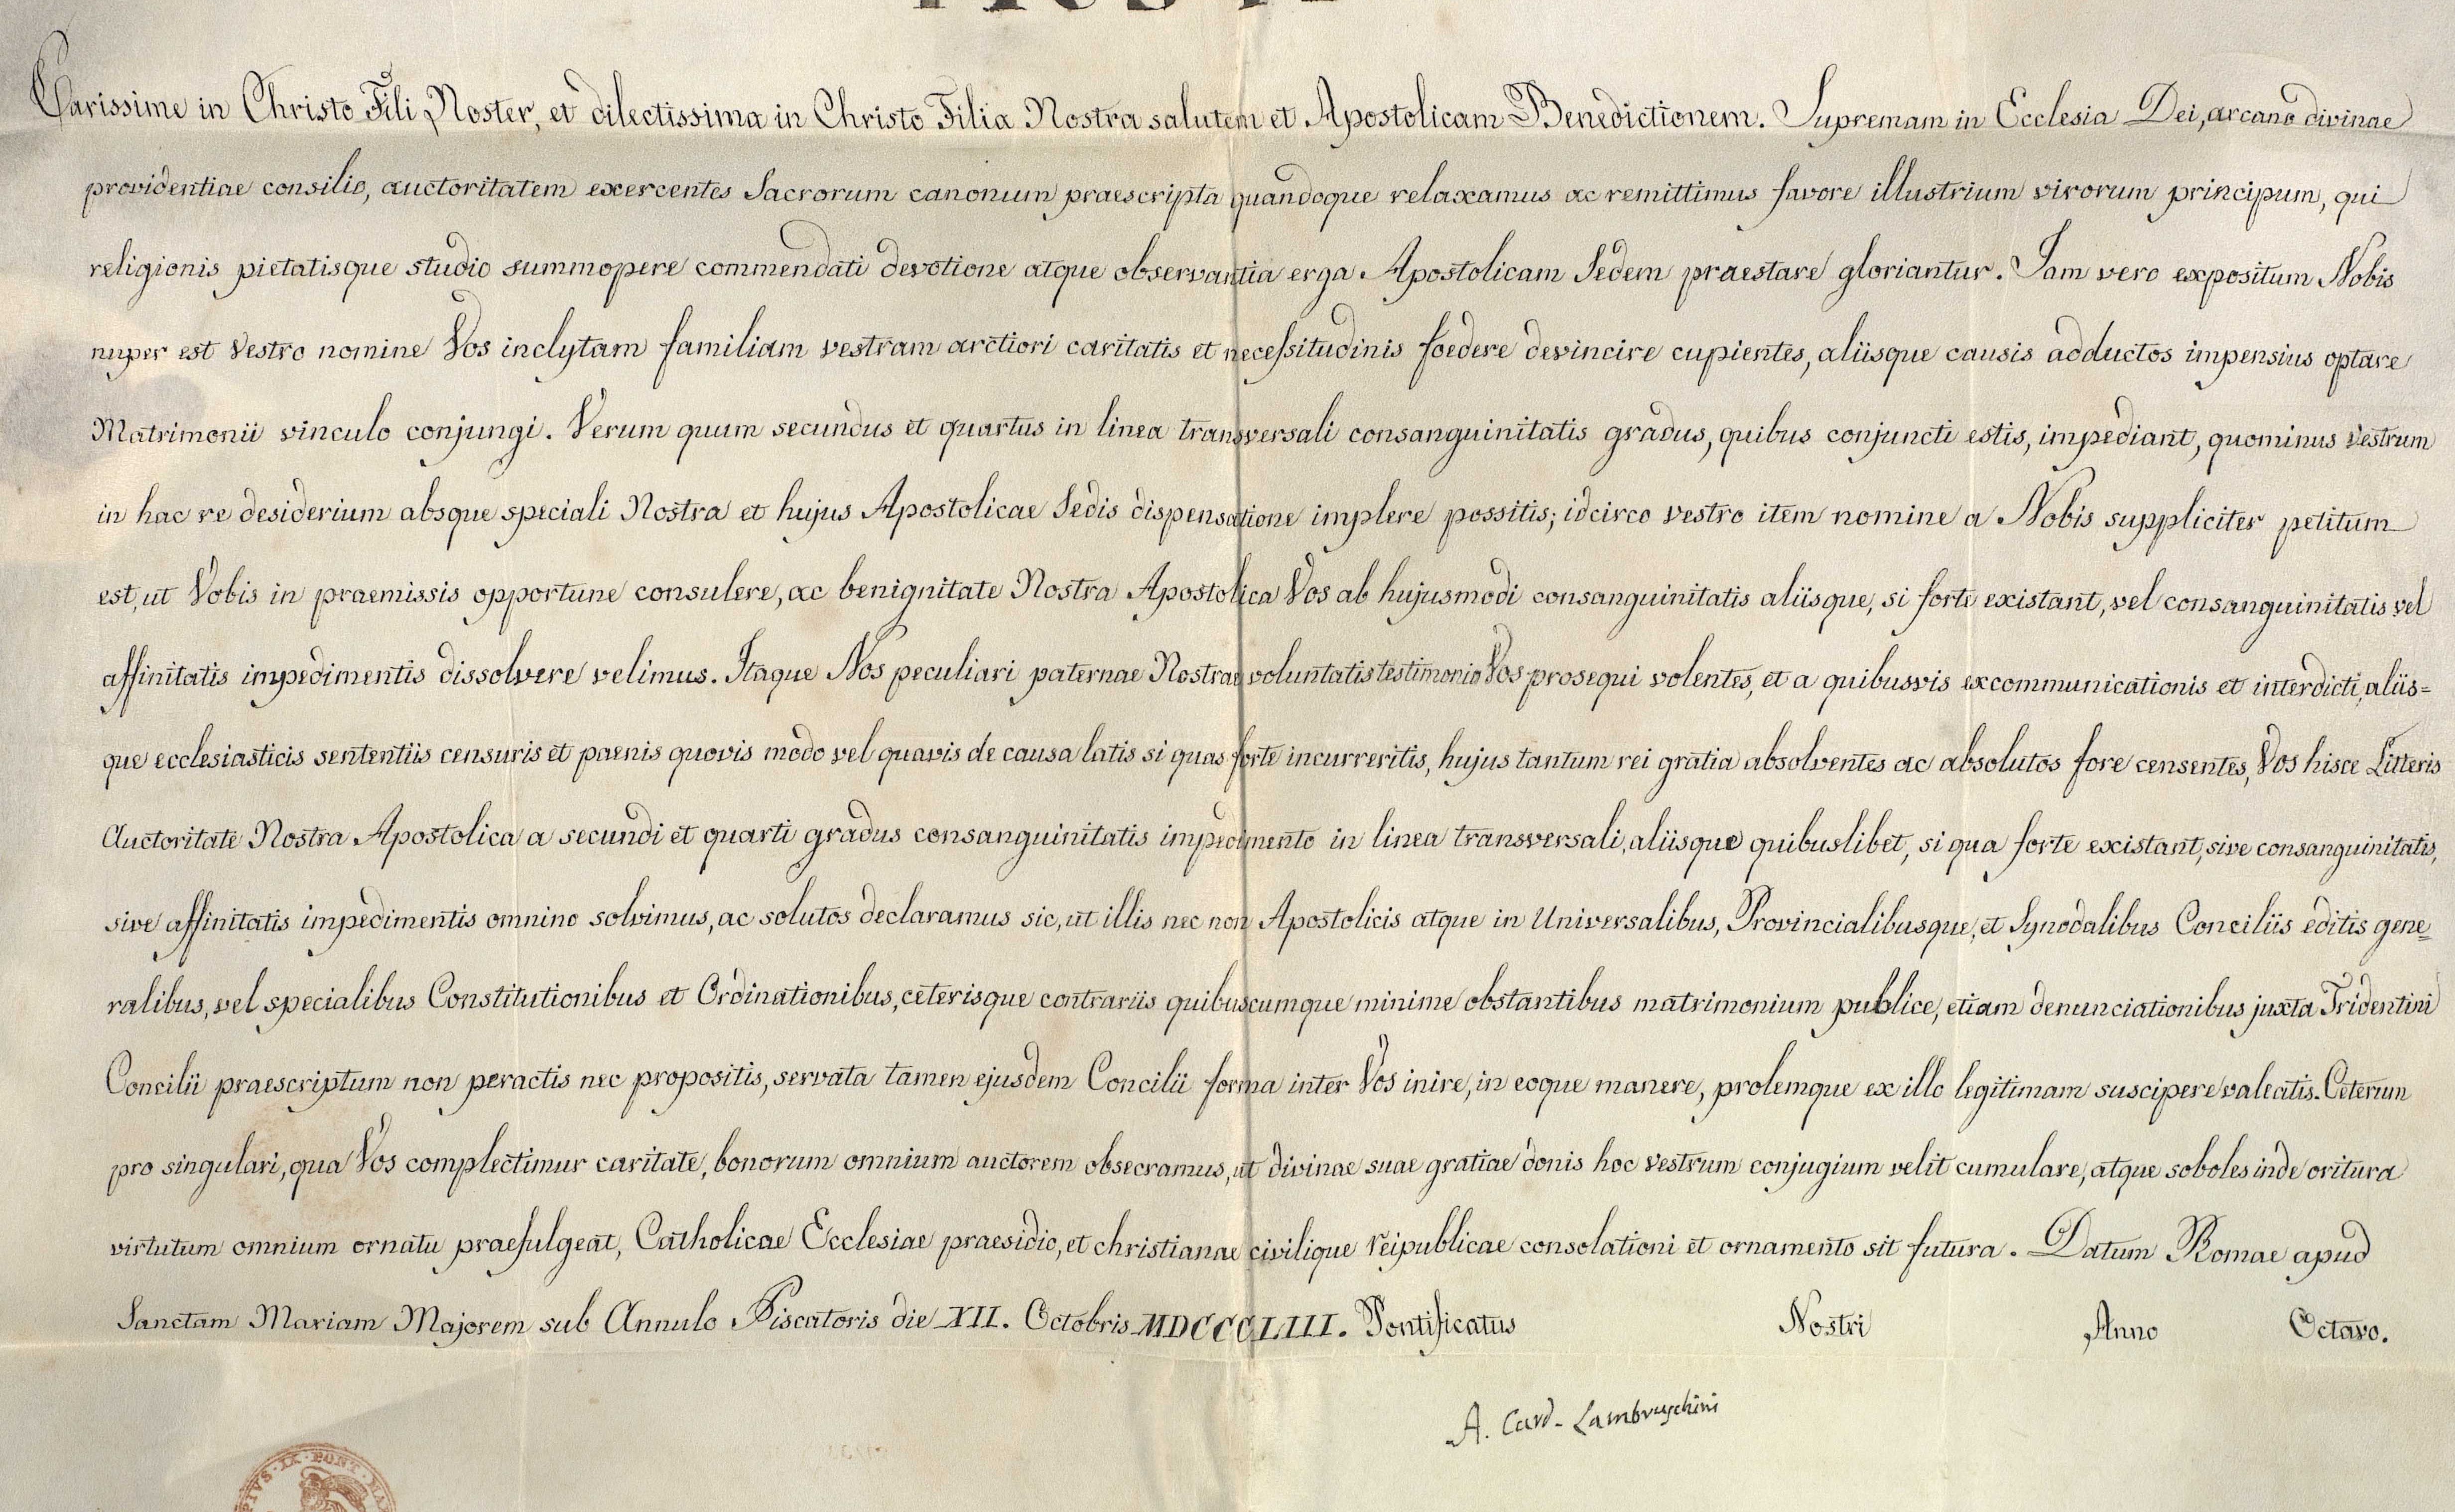 Carissime in Christo Fili Noster, et dilectissima in Christo Filia Nostra salutem et Apostolicam Benedictionem. Supremam in Ecclesia Dei, arcano divinae
providentiae consilio, auctoritatem exercentes Sacrorum canonum praescripta quandoque relaxamus ac remittimus favore illustrium virorum principum, qui
religionis pietatisque studio summopere commendati devotione atque observantia erga Apostolicam Sedem praestare gloriantur. Jam vero expositum Nobis
nuper est Vestro nomine Vos inclytam familiam vestram arctiori caritatis et necessitudinis foedere devincire cupientes, aliisque causis adductos impensius optare
Matrimonii vinculo conjungi. Verum quum secundus et quartus in linea transversali consanguinitatis gradus, quibus conjuncti estis, impediant, quominus Vestrum
in hac re desiderium absque speciali Nostra et hujus Apostolicae Sedis dispensatione implere possitis; idcirco vestro item nomine a Nobis suppliciter petitum
est, ut Vobis in praemissis opportune consulere, ac benignitate Nostra Apostolica Vos ab hujusmodi consanguinitatis aliisque, si forte existant, vel consanguinitatis vel
affinitatis impedimentis dissolvere velimus. Itaque Nos peculiari paternae Nostrae voluntatis testimonio Vos prosequi volentes, et a quibusvis excommunicationis et interdicti, aliis=
que ecclesiasticis sententiis censuris et paenis quovis modo vel quavis de causa latis si quas forte incurreritis, hujus tantum rei gratia absolventes ac absolutos fore censentes, Vos hisce Litteris
Auctoritate Nostra Apostolica a secundi et quarti gradus consanguinitatis impedimento in linea transversali, aliisque quibuslibet, si qua forte existant, sive consanguinitatis,
sive affinitatis impedimentis omnino solvimus, ac solutos declaramus sic, ut illis nec non Apostolicis atque in Universalibus, Provincialibusque, et Synodalibus Conciliis editis gene=
ralibus, vel specialibus Constitutionibus et Ordinationibus, ceterisque contrariis quibuscumque minime obstantibus matrimonium publice, etiam denunciationibus juxta Tridentini
Concilii praescriptum non peractis nec propositis, servata tamen ejusdem Concilii forma inter Vos inire, in eoque manere, prolemque ex illo legitimam suscipere valeatis. Ceterum
pro singulari, qua Vos complectimur caritate, bonorum omnium auctorem obsecramus, ut divinae suae gratiae donis hoc Vestrum conjugium velit cumulare, atque soboles inde oritura
virtutum omnium ornatu praefulgeat, Catholicae Ecclesiae praesidio, et christianae civilique reipublicae consolationi et ornamento sit futura. Datum Romae apud
Sanctam Mariam Majorem sub Annulo Piscatoris die XII. Octobris MDCCCLIII. Pontificatus Nostri Anno Octavo.
A. Card. Lambruschini
PIVS · IX · PONT · MAX